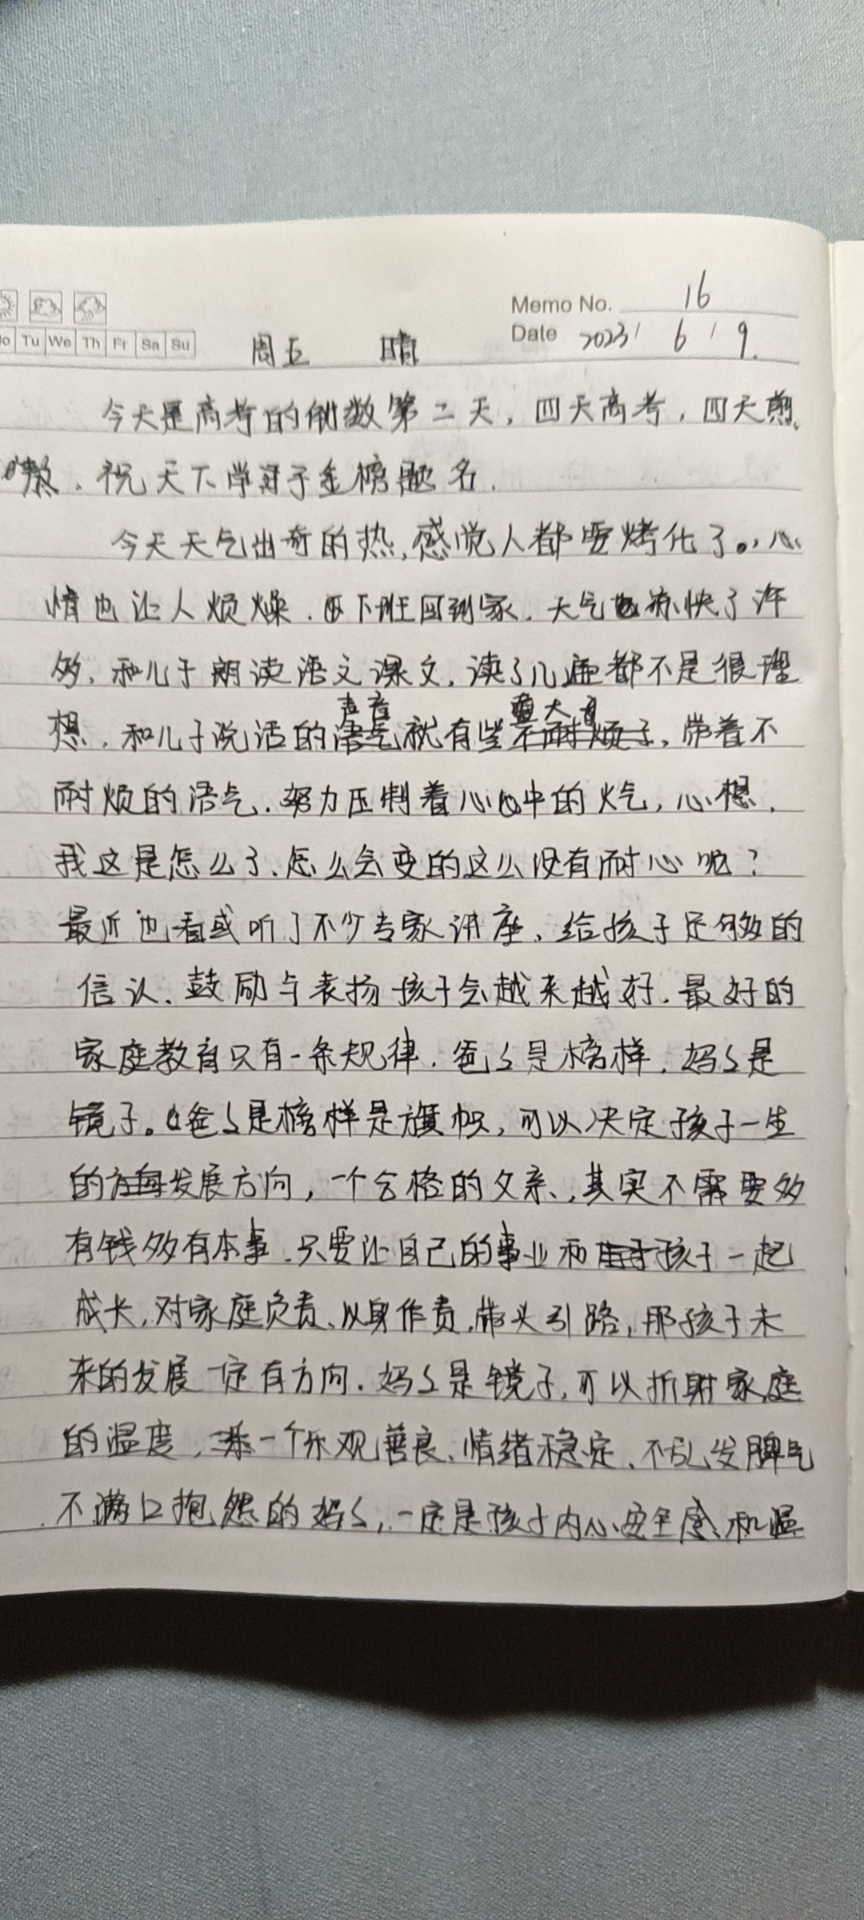 Memo No. 16
Mo Tu We Th Fr Sa Su
Date 2023/6/9.
周五 晴
今天是高考的倒数第二天，四天高考，四天煎
熬．祝天下学子金榜题名．
今天天气出奇的热，感觉人都要烤化了。，心
情也让人烦燥．下班回到家．天气凉快了许
多，和儿子朗读语文课文，读了几遍都不是很理
声音
想．和儿子说话的语气就有些不耐烦了，带着不
耐烦的语气．努力压制着心中的火气，心想．
我这是怎么了、怎么会变的这么没有耐心呢？
最近也看或听了不少专家讲座、给孩子足够的
信认、鼓励与表扬孩子会越来越好．最好的
家庭教育只有一条规律．爸爸是榜样．妈妈是
镜子。爸爸是榜样是旗帜，可以决定孩子一生
的方向发展方向，一个合格的父亲，其实不需要多
有钱多有本事．只要让自己的事业和孩子一起
成长，对家庭负责、以身作责，带头引路，那孩子未
来的发展一定有方向．妈妈是镜子，可以折射家庭
的温度，一个乐观善良、情绪稳定、不乱发脾气
不满口抱怨的妈妈，一定是孩子内心安全感和温